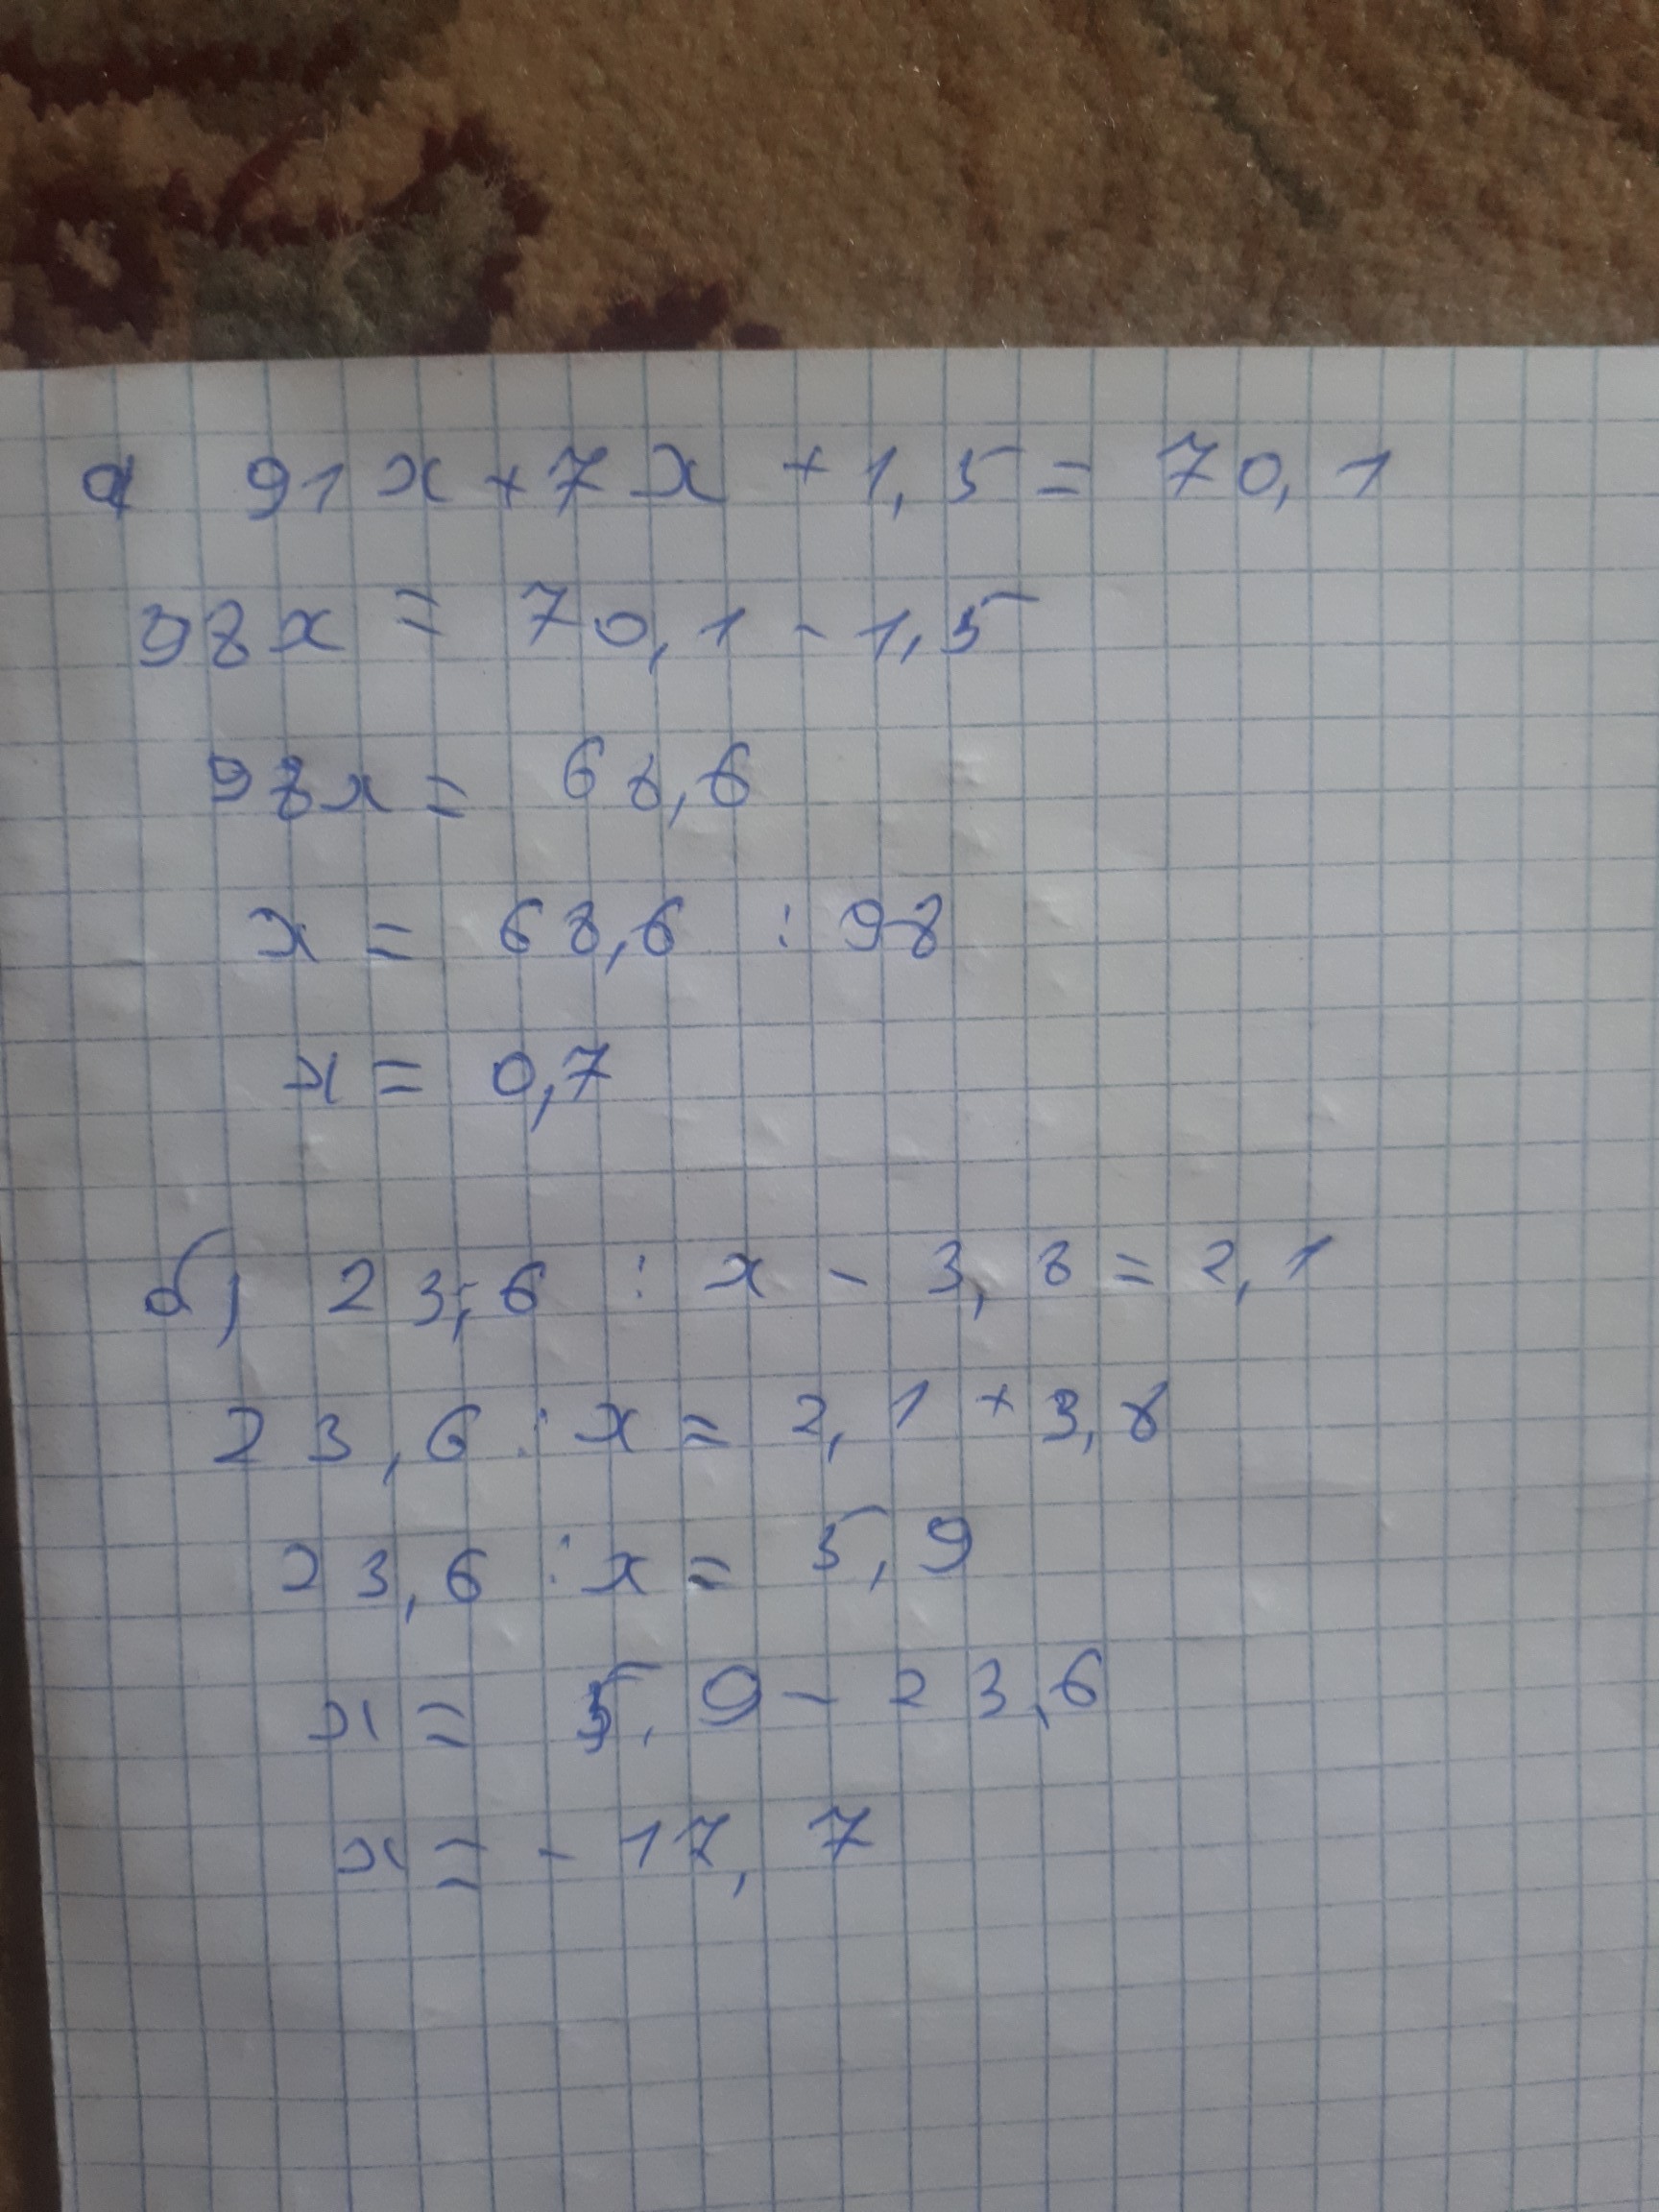 а 91x+7x+1,5=70,1
98x=70,1-1,5
98x=68,6
x=68,6:98
x=0,7
б) 23,6:x-3,8=2,1
23,6:x=2,1+3,8
23,6:x=5,9
x=5,9-23,6
x=-17,7